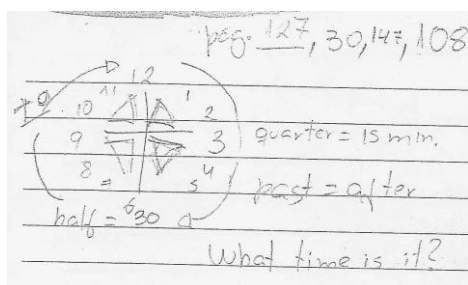 pag. 127, 30, 147, 108
12
11 1
10 2
9 3
quarter = 15 min.
8 4
7 5
past = after
half = 6 30
What time is it?